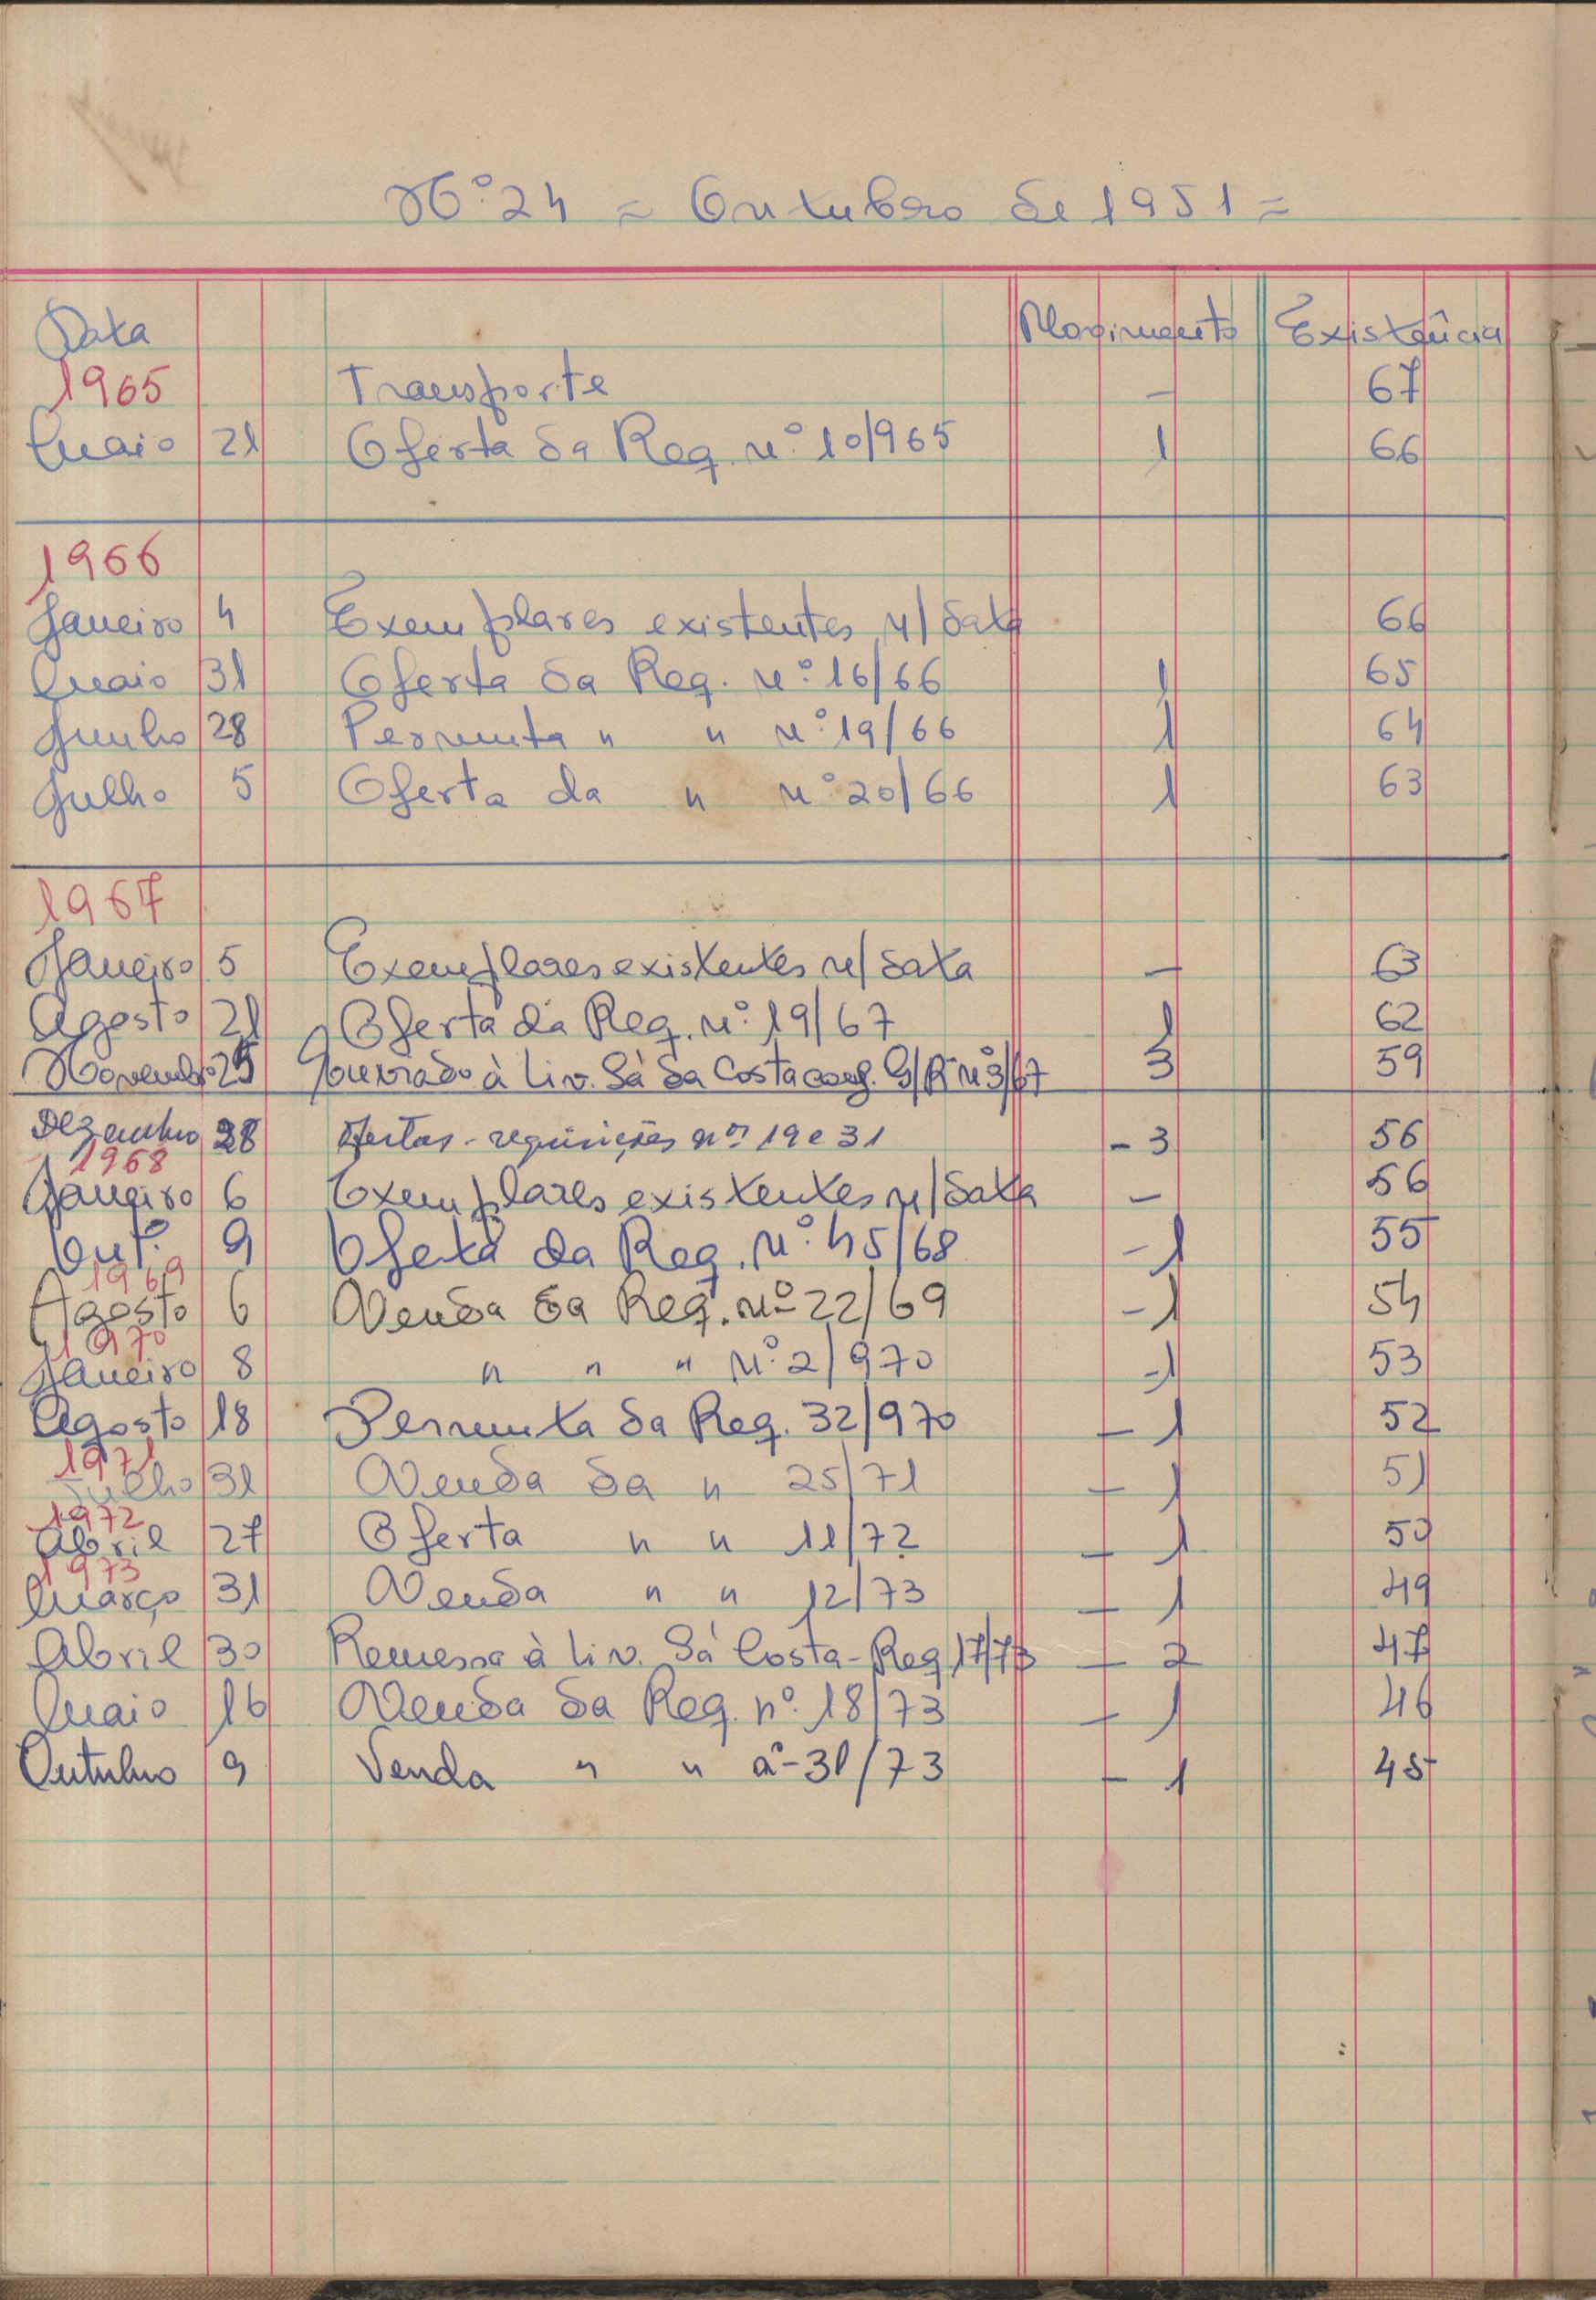 Nº 24 = Outubro de 1951 =
Data Movimento Existência
1965 Transporte — 67
Maio 21 Oferta da Req. nº 10/965 1 66
1966
Janeiro 4 Exemplares existentes n/data 66
Maio 31 Oferta da Req. nº 16/66 1 65
Junho 28 Permuta " " nº 19/66 1 64
Julho 5 Oferta da " nº 20/66 1 63
1967
Janeiro 5 Exemplares existentes n/data — 63
Agosto 21 Oferta da Req. nº 19/67 1 62
Novembro 25 à Liv. Sá da Costa conf. G/R nº 3/67 3 59
Dezembro 28 Ofertas - requisições nos 19 e 31 - 3 56
1968
Janeiro 6 Exemplares existentes n/data — 56
Out.º 9 Oferta da Req. Nº 45/68 - 1 55
1969
Agosto 6 Venda da Req. nº 22/69 - 1 54
1970
Janeiro 8 " " " Nº 2/970 - 1 53
Agosto 18 Permuta da Req. 32/970 - 1 52
1971
Julho 31 Venda da " 25/71 - 1 51
1972
Abril 27 Oferta " " 11/72 - 1 50
1973
Março 31 Venda " " 12/73 - 1 49
Abril 30 Remessa à Liv. Sá Costa - Req 17/73 - 2 47
Maio 16 Venda da Req. nº 18/73 - 1 46
Outubro 9 Venda " " nº 31/73 - 1 45